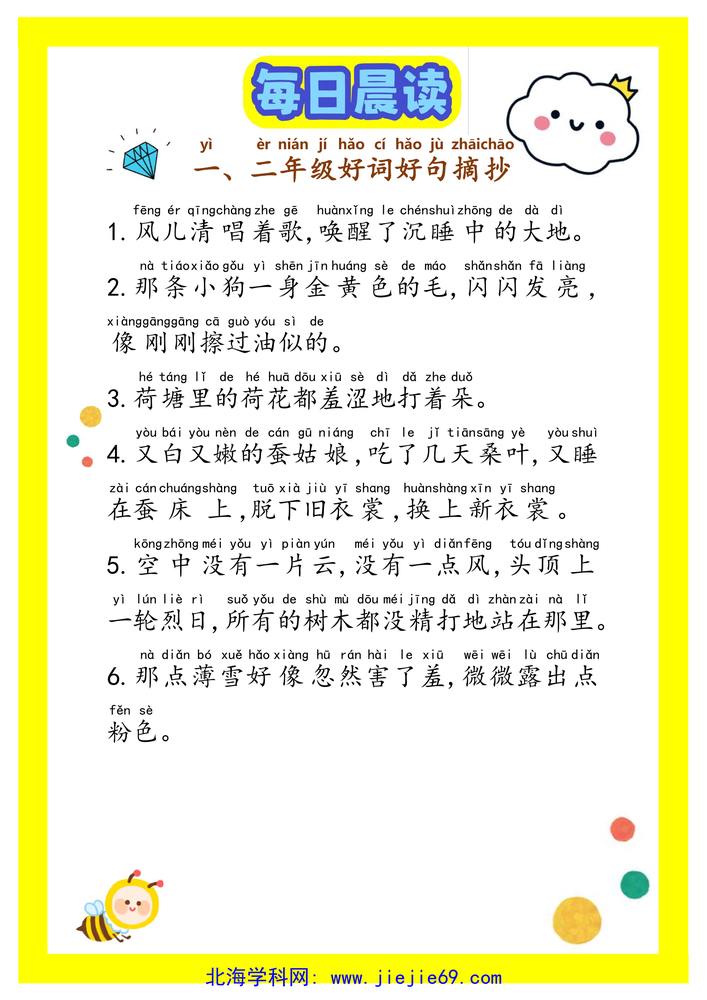 每日晨读
yì èr nián jí hǎo cí hǎo jù zhāichāo
一、二年级好词好句摘抄
fēng ér qīngchàng zhe gē huànxǐng le chénshuìzhōng de dà dì
1.风儿清唱着歌,唤醒了沉睡中的大地。
nà tiáoxiǎogǒu yì shēn jīn huáng sè de máo shǎnshǎn fā liàng
2.那条小狗一身金黄色的毛,闪闪发亮,
xiànggānggāng cā guò yóu sì de
像刚刚擦过油似的。
hé táng lǐ de hé huā dōu xiū sè dì dǎ zhe duǒ
3.荷塘里的荷花都羞涩地打着朵。
yòu bái yòu nèn de cán gū niáng chī le jǐ tiānsāng yè yòu shuì
4.又白又嫩的蚕姑娘,吃了几天桑叶,又睡
zài cán chuángshàng tuō xià jiù yī shang huànshàng xīn yī shang
在蚕床上,脱下旧衣裳,换上新衣裳。
kōngzhōng méi yǒu yì piàn yún méi yǒu yì diǎnfēng tóu dǐngshàng
5.空中没有一片云,没有一点风,头顶上
yì lún liè rì suǒ yǒu de shù mù dōu méi jīng dǎ dì zhàn zài nà lǐ
一轮烈日,所有的树木都没精打地站在那里。
nà diǎn bó xuě hǎo xiàng hū rán hài le xiū wēi wēi lù chū diǎn
6.那点薄雪好像忽然害了羞,微微露出点
fěn sè
粉色。
北海学科网: www.jiejie69.com